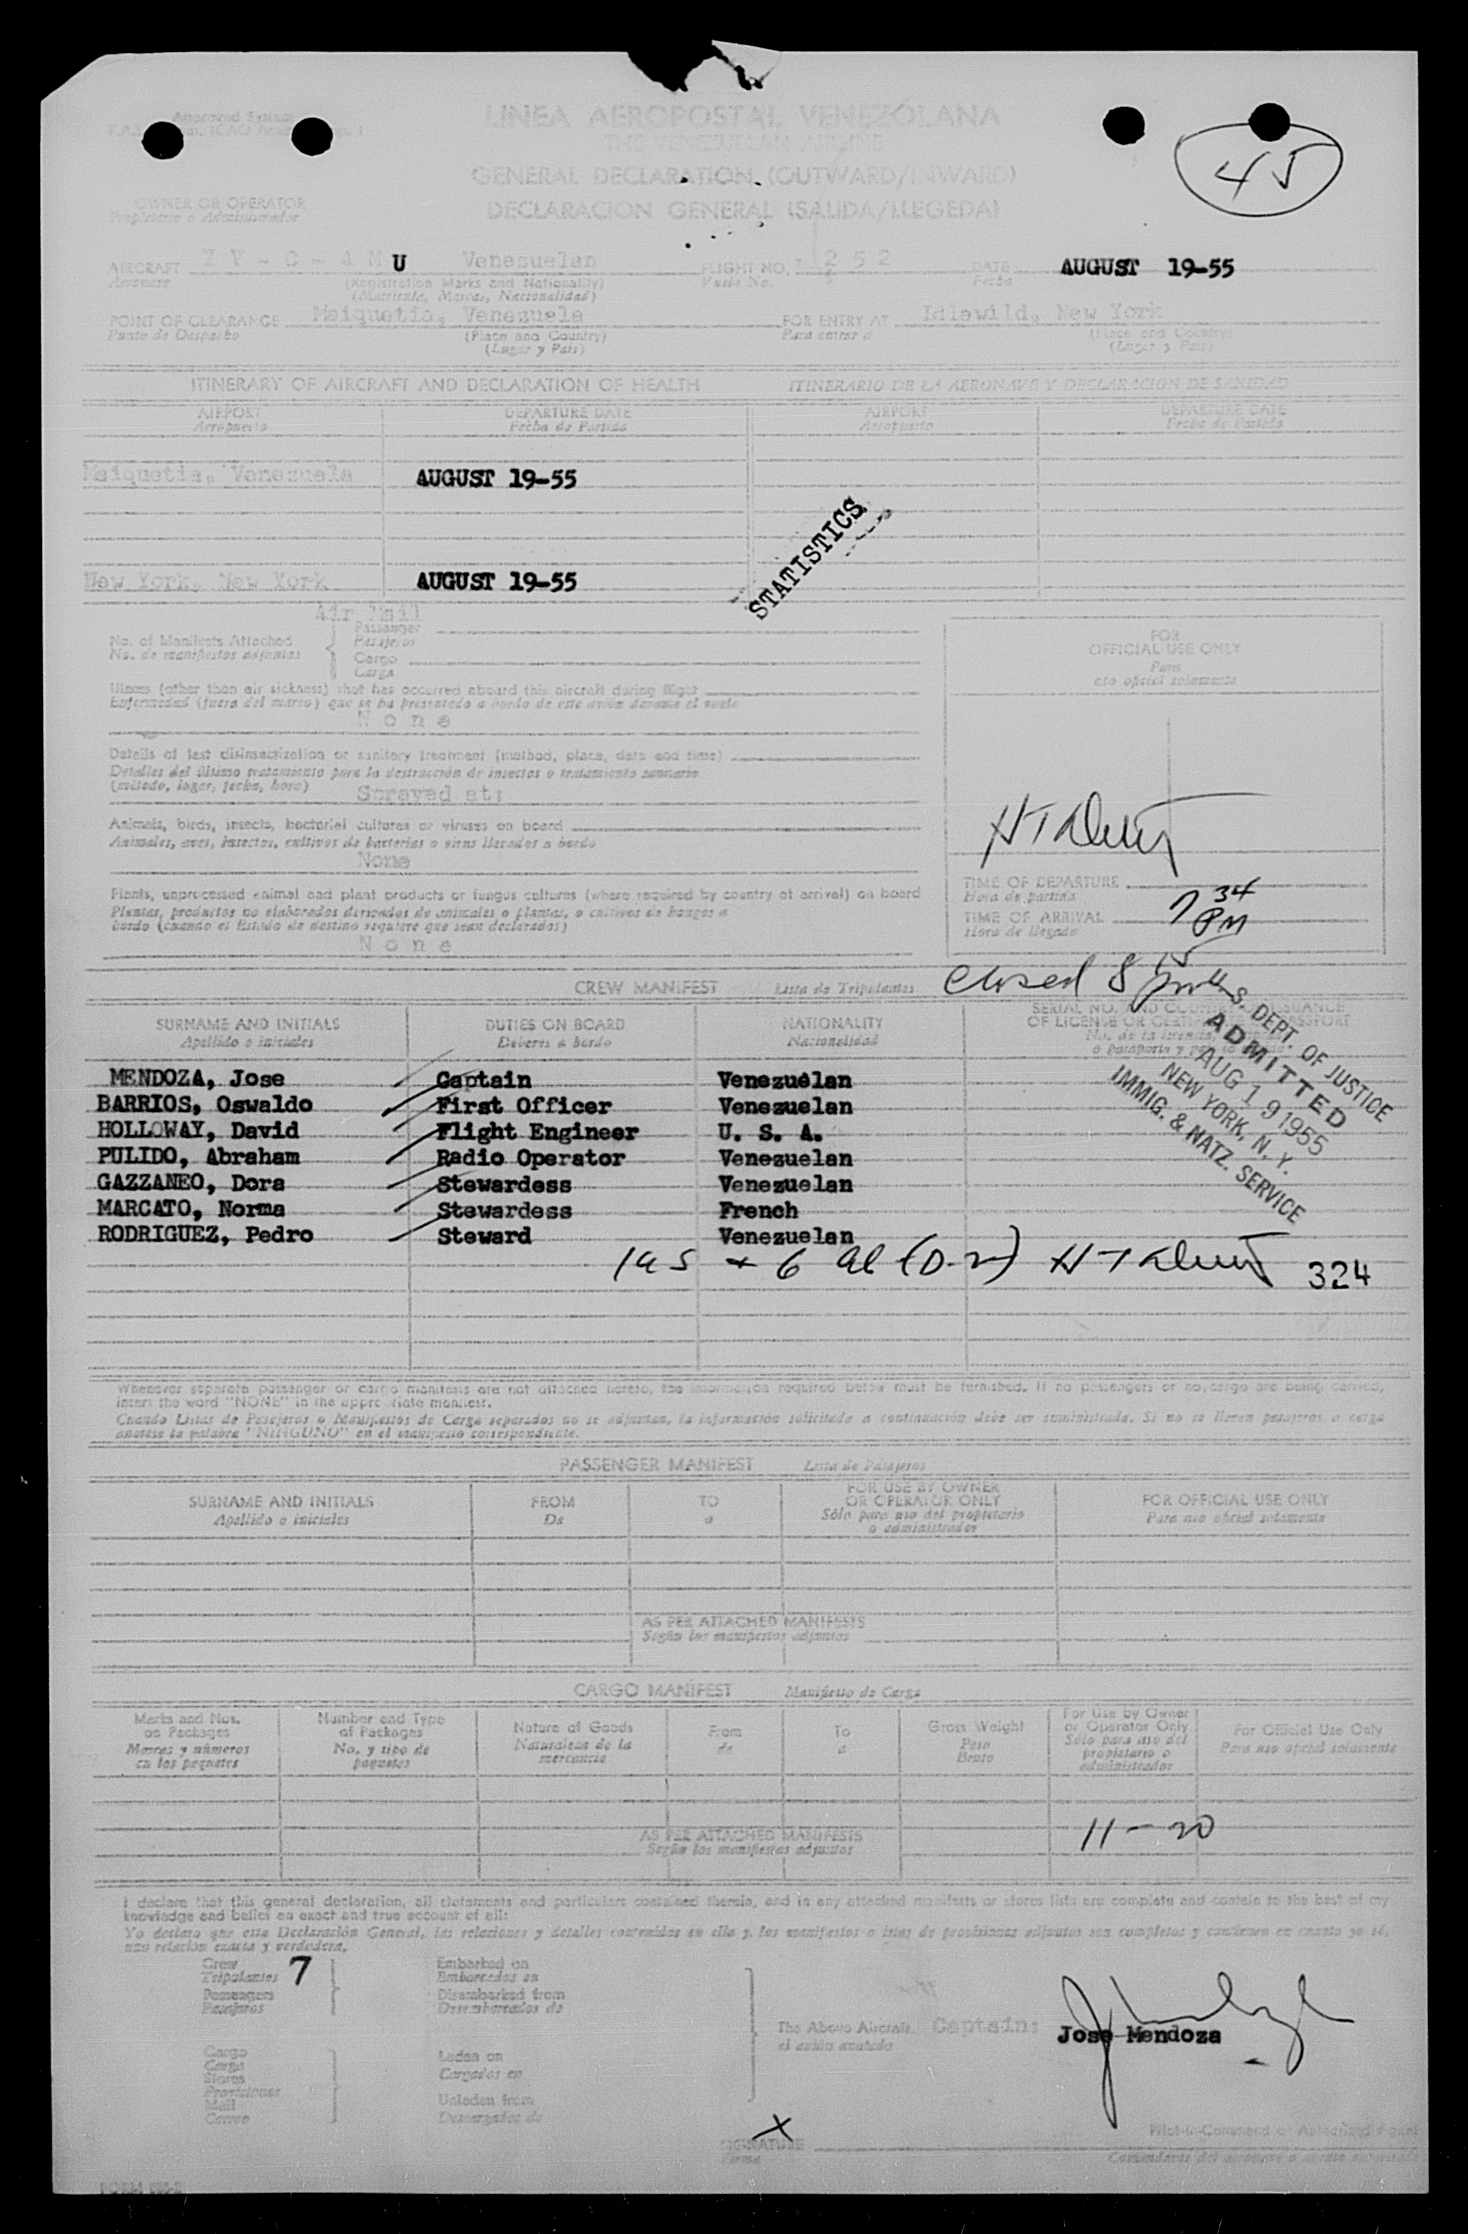 45
LINEA AEROPOSTAL VENEZOLANA
THE VENEZUELAN AIRLINE
GENERAL DECLARATION (OUTWARD/INWARD)
DECLARACION GENERAL (SALIDA/LLEGEDA)
OWNER OR OPERATOR
Propietario o Administrador
AIRCRAFT Y V - C - A M U Venezuelan FLIGHT NO. 252 DATE AUGUST 19-55
Aeronave (Registration Marks and Nationality) Vuelo No. Fecha
(Matricula, Marcas, Nacionalidad)
POINT OF CLEARANCE Maiquetia, Venezuela FOR ENTRY AT Idlewild, New York
Punto de Despacho (Place and Country) Para entrar a (Place and Country)
(Lugar y Pais) (Lugar y Pais)
ITINERARY OF AIRCRAFT AND DECLARATION OF HEALTH ITINERARIO DE LA AERONAVE Y DECLARACION DE SANIDAD
AIRPORT DEPARTURE DATE AIRPORT DEPARTURE DATE
Aeropuerto Fecha de Partida Aeropuerto Fecha de Partida
Maiquetia, Venezuela AUGUST 19-55
STATISTICS
New York, New York AUGUST 19-55
Air Mail
No. of Manifests Attached Passenger
No. de manifiestos adjuntos Pasajeros
Cargo
Carga
FOR
OFFICIAL USE ONLY
Para
uso oficial solamente
Illness (other than air sickness) that has occurred aboard this aircraft during flight
Enfermedad (fuera del mareo) que se ha presentado a bordo de este avion durante el vuelo
None
Details of last disinsectization or sanitary treatment (method, place, date and time)
Detalles del último tratamiento para la destrucción de insectos o tratamiento sanitario
(método, lugar, fecha, hora) Sprayed at:
Animals, birds, insects, bacterial cultures or viruses on board
Animales, aves, insectos, cultivos de bacterias o virus llevados a bordo
None
Plants, unprocessed animal and plant products or fungus cultures (where required by country of arrival) on board
Plantas, productos no elaborados derivados de animales o plantas, o cultivos de hongos a
bordo (cuando el Estado de destino requiere que sean declarados)
None
TIME OF DEPARTURE
Hora de partida
TIME OF ARRIVAL 7 34 PM
Hora de llegada
Closed 8 15 pm
CREW MANIFEST Lista de Tripulantes
SURNAME AND INITIALS DUTIES ON BOARD NATIONALITY
Apellido o iniciales Deberes a bordo Nacionalidad
U.S. DEPT. OF JUSTICE
ADMITTED
AUG 19 1955
NEW YORK, N. Y.
IMMIG. & NATZ. SERVICE
MENDOZA, Jose Captain Venezuelan
BARRIOS, Oswaldo First Officer Venezuelan
HOLLOWAY, David Flight Engineer U. S. A.
PULIDO, Abraham Radio Operator Venezuelan
GAZZANEO, Dora Stewardess Venezuelan
MARCATO, Norma Stewardess French
RODRIGUEZ, Pedro Steward Venezuelan
1 US + 6 al (D-2) 324
Whenever separate passenger or cargo manifests are not attached hereto, the information required below must be furnished. If no passengers or no cargo are being carried,
insert the word "NONE" in the appropriate manifest.
Cuando Listas de Pasajeros o Manifiestos de Carga separados no se adjuntan, la información solicitada a continuación debe ser suministrada. Si no se llevan pasajeros o carga
anótese la palabra "NINGUNO" en el manifiesto correspondiente.
PASSENGER MANIFEST Lista de Pasajeros
SURNAME AND INITIALS FROM TO FOR USE BY OWNER OR OPERATOR ONLY FOR OFFICIAL USE ONLY
Apellido o iniciales De a Sólo para uso del propietario o administrador Para uso oficial solamente
AS PER ATTACHED MANIFESTS
Según los manifiestos adjuntos
CARGO MANIFEST Manifiesto de Carga
Marks and Nos. on Packages Number and Type of Packages Nature of Goods From To Gross Weight For Use by Owner or Operator Only For Official Use Only
Marcas y números en los paquetes No. y tipo de paquetes Naturaleza de la mercancia de a Peso Bruto Sólo para uso del propietario o administrador Para uso oficial solamente
11-20
AS PER ATTACHED MANIFESTS
Según los manifiestos adjuntos
I declare that this general declaration, all statements and particulars contained therein, and in any attached manifests or stores lists are complete and contain to the best of my
knowledge and belief an exact and true account of all:
Yo declaro que esta Declaración General, las relaciones y detalles contenidos en ella y los manifiestos o listas de provisiones adjuntos son completos y contienen en cuanto yo sé,
una relación exacta y verdadera.
Crew 7 Embarked on
Tripulantes Embarcados en
Passengers Disembarked from
Pasajeros Desembarcados de
The Above Aircraft. Captain: Jose Mendoza
el avión anotado
Cargo
Carga Laden on
Stores Cargados en
Provisiones
Mail Unladen from
Correo Descargados de
X
SIGNATURE Pilot-in-Command or Authorized Agent
Firma Comandante del aeronave o agente autorizado